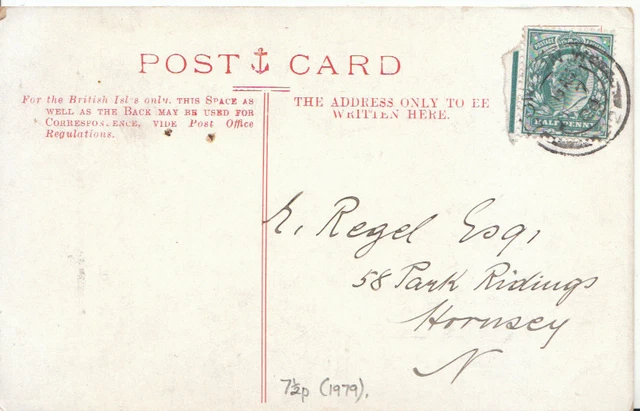 POST CARD
For the British Isles only. THIS SPACE AS
WELL AS THE BACK MAY BE USED FOR
CORRESPONDENCE, VIDE Post Office
Regulations.
THE ADDRESS ONLY TO BE
WRITTEN HERE.
HALF PENNY
E. Regel Esq,
58 Park Ridings
Hornsey
N
7½p (1979).